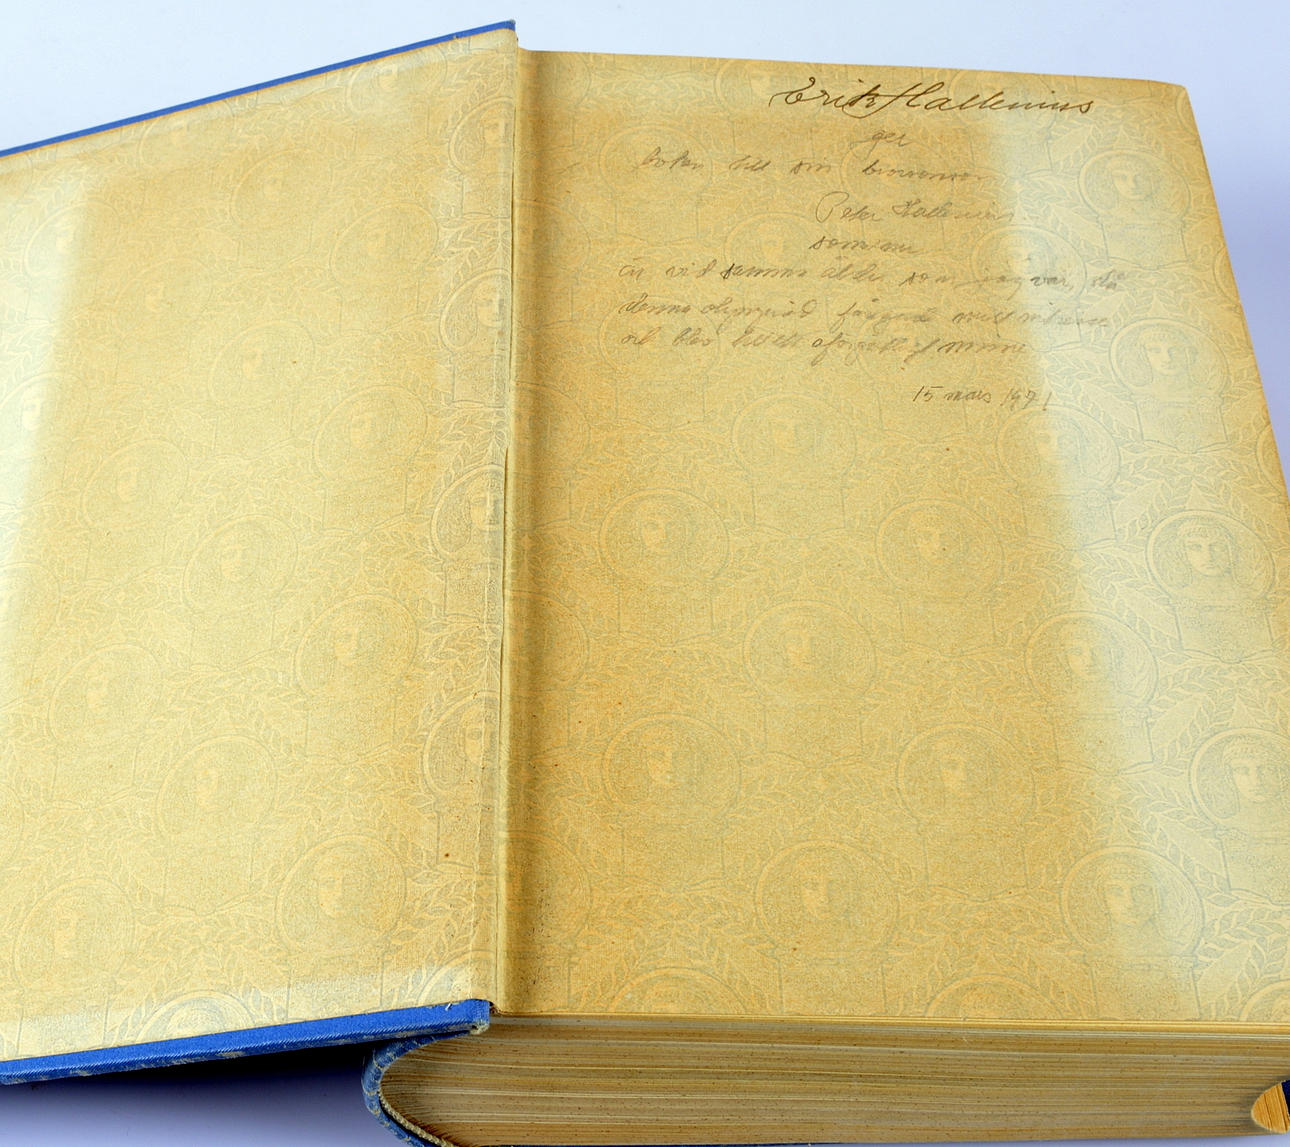 Erik Hallenius
ger
boken till sin brorsonson
Peter Hallenius
som nu
är vid samma ålder som jag var, då
denna olympiad fångade mitt intresse
och blev ett minne
15 mars 1971